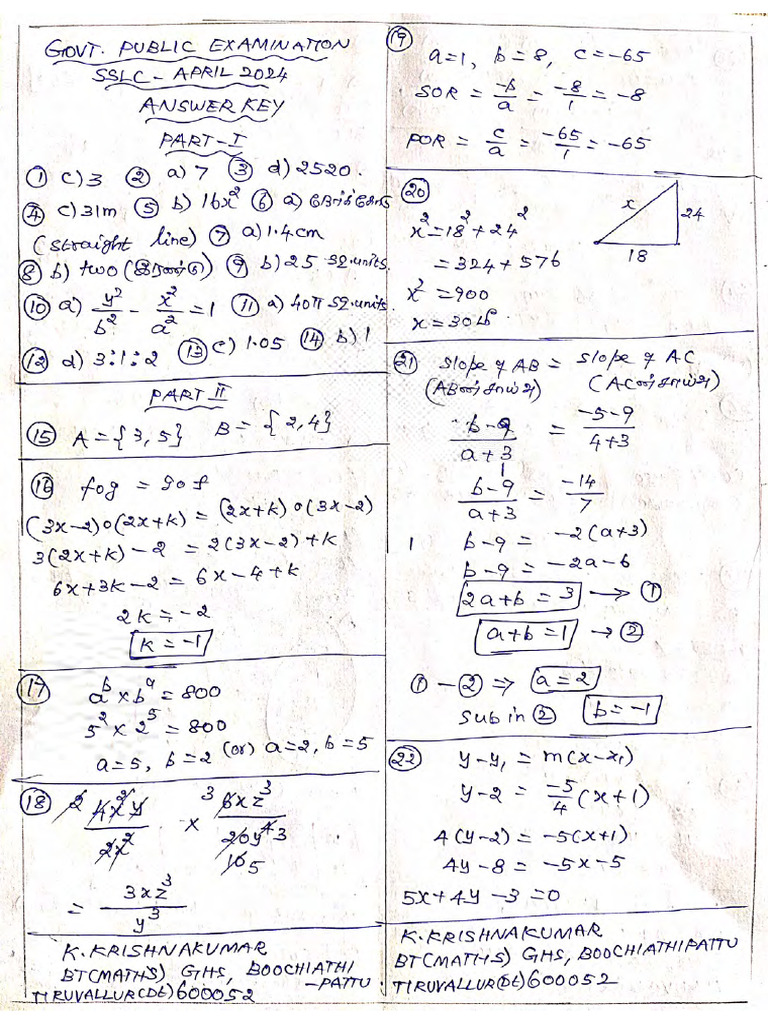 GOVT. PUBLIC EXAMINATION
SSLC - APRIL 2024
ANSWER KEY
PART-I
① c) 3 ② a) 7 ③ d) 2520.
④ c) 31m ⑤ b) 16x² ⑥ a) நேர்க்கோடு
(straight line) ⑦ a) 1.4cm
⑧ b) two (இரண்டு) ⑨ b) 25 sq.units.
⑩ a) y²/b² - x²/a² = 1 ⑪ a) 40π sq.units.
⑫ d) 3:1:2 ⑬ c) 1.05 ⑭ b) 1
PART II
⑮ A = {3,5} B = {2,4}
⑯ fog = gof
(3x-2)o(2x+k) = (2x+k)o(3x-2)
3(2x+k) - 2 = 2(3x-2)+k
6x+3k-2 = 6x-4+k
2k = -2
k = -1
⑰ a^b × b^a = 800
5² × 2⁵ = 800
a=5, b=2 (or) a=2, b=5
⑱ 2 4x²y/2x² × 3 6xz³/20y⁴ 3
10 5
= 3xz³/y³
K. KRISHNAKUMAR
BT(MATHS) GHS, BOOCHIATHI
-PATTU
TIRUVALLUR(Dt) 600052
⑲ a=1, b=8, c=-65
SOR = -b/a = -8/1 = -8
POR = c/a = -65/1 = -65
⑳ x 24
18
x² = 18² + 24²
= 324 + 576
x² = 900
x = 30 மீ
㉑ slope of AB = slope of AC
(ABன் சாய்வு) (ACன் சாய்வு)
b-9/a+3 = -5-9/4+3
b-9/a+3 = -14/7
b-9 = -2(a+3)
b-9 = -2a-6
2a+b = 3 → ①
a+b = 1 → ②
① - ② ⇒ a = 2
sub in ② b = -1
㉒ y-y₁ = m(x-x₁)
y-2 = -5/4 (x+1)
4(y-2) = -5(x+1)
4y-8 = -5x-5
5x+4y-3 = 0
K. KRISHNAKUMAR
BT(MATHS) GHS, BOOCHIATHIPATTU
TIRUVALLUR(Dt) 600052